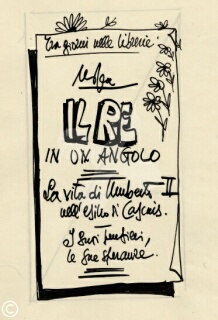 Tra giorni nelle librerie:
IL RE
IN UN ANGOLO
La vita di Umberto II
nell'esilio di Cascais.
I suoi pensieri,
le sue speranze.
©